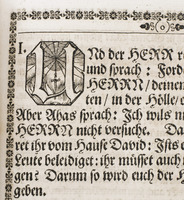 I.
UNd der HERR re
und sprach: Ford
HERRN/ deinem
ten/ in der Hölle/ o
Aber Ahas sprach: Ich wils n
HERRN nicht versuche. Da
ret ihr vom Hause David: Ists
Leute beleidiget: ihr müsset auch
gen? Darum so wird euch der H
geben.